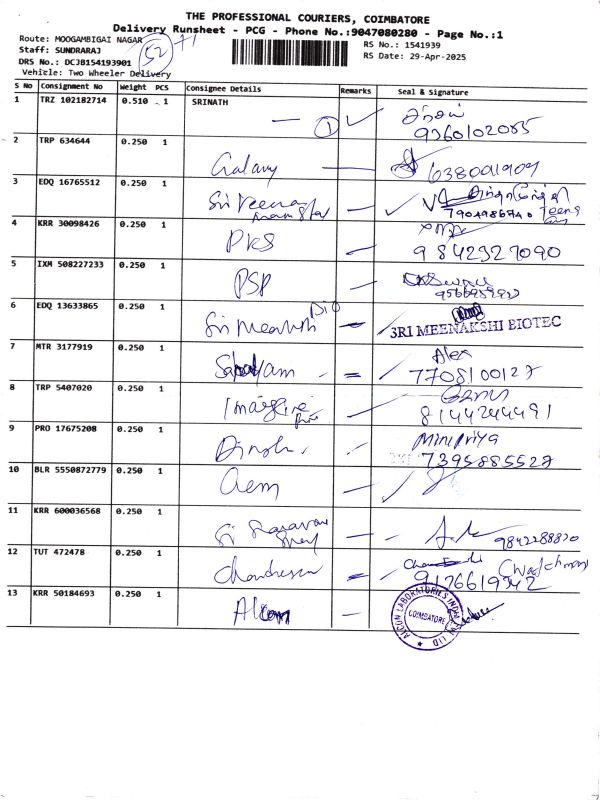 THE PROFESSIONAL COURIERS, COIMBATORE
Delivery Runsheet - PCG - Phone No.:9047080280 - Page No.:1
Route: MOOGAMBIGAI NAGAR
Staff: SUNDRARAJ
DRS No.: DCJB154193901
Vehicle: Two Wheeler Delivery
52
71
RS No.: 1541939
RS Date: 29-Apr-2025
S No Consignment No Weight PCS Consignee Details Remarks Seal & Signature
1 TRZ 102182714 0.510 1 SRINATH 1
2 TRP 634644 0.250 1 Galaxy
3 EDQ 16765512 0.250 1 Sri
4 KRR 30098426 0.250 1 PKS 9842327090
5 IXM 508227233 0.250 1 PSP
6 EDQ 13633865 0.250 1 Sri Meenakshi Bio SRI MEENAKSHI BIOTEC
7 MTR 3177919 0.250 1 Alex
7708100127
8 TRP 5407020 0.250 1 Imagine
8144244491
9 PRO 17675208 0.250 1 Dinesh Minipriya
7395885527
10 BLR 5550872779 0.250 1 aem
11 KRR 600036568 0.250 1 Sri 9842288870
12 TUT 472478 0.250 1 (Watchman)
13 KRR 50184693 0.250 1 Alcon
ALCON LABORATORIES INDIA PVT LTD
COIMBATORE